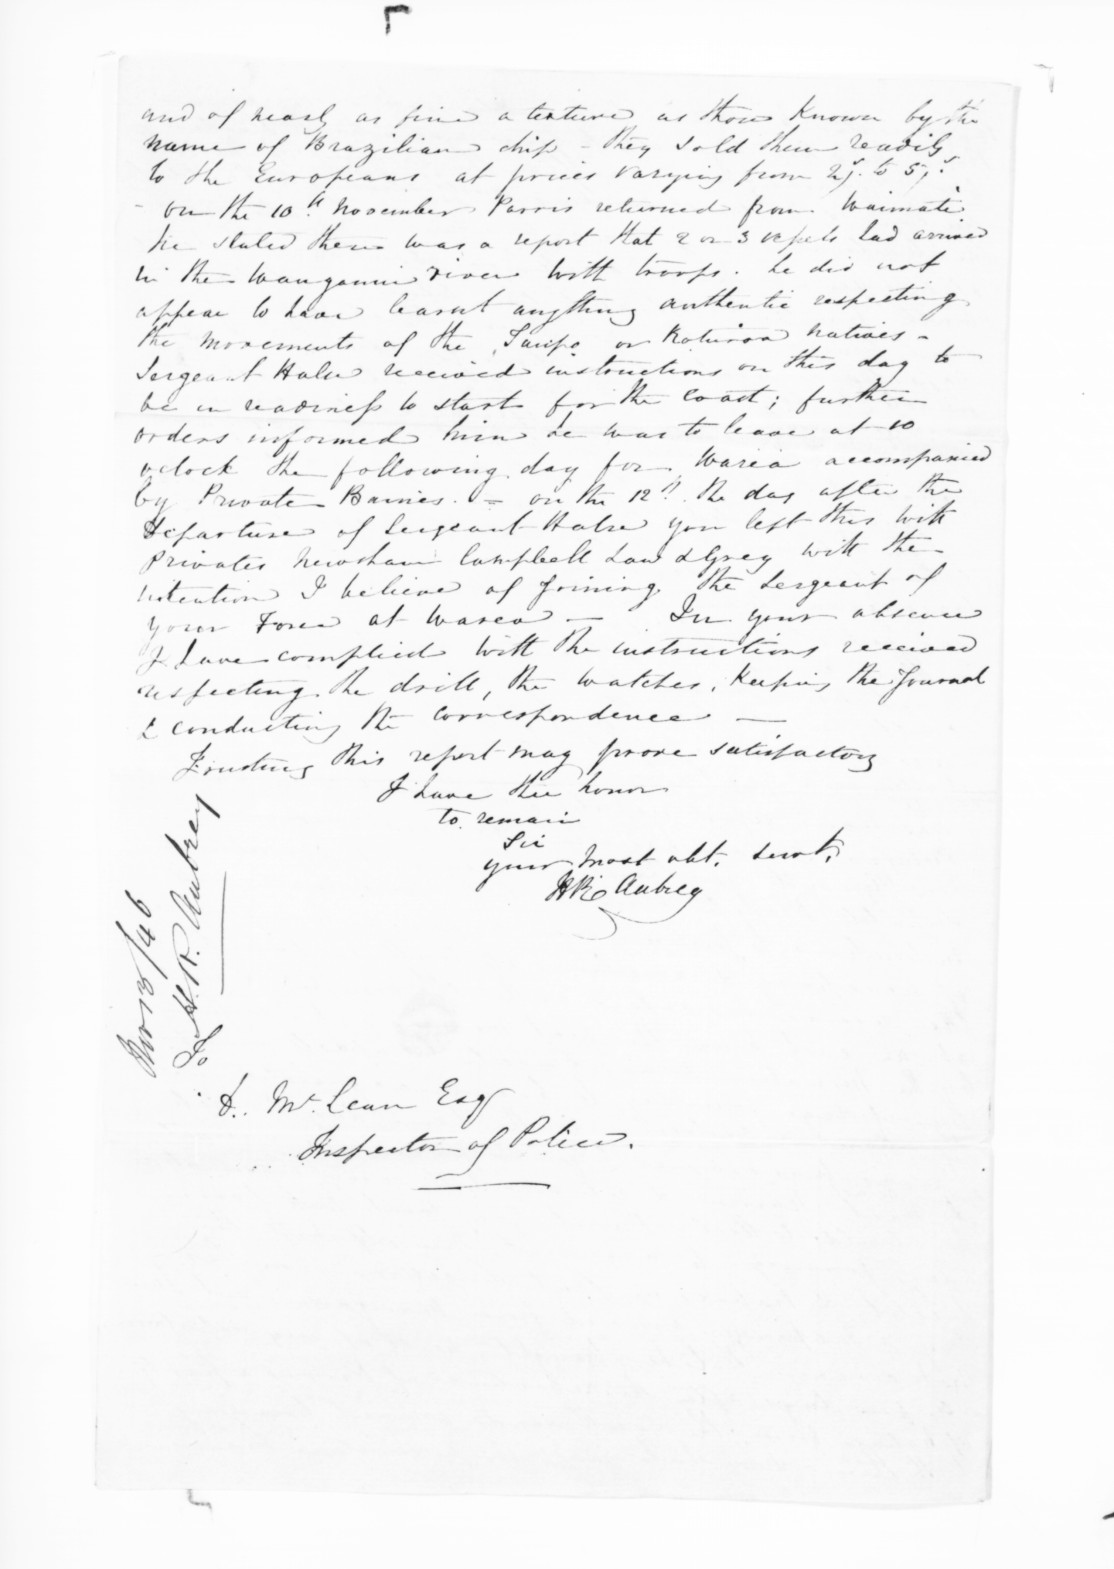 and of nearly as fine a texture as those known by the
name of Brazilian chip - they sold them readily
to the Europeans at prices varying from 2/. to 5/.
- on the 10th November Parris returned from Waimate
he stated there was a report that 2 or 3 vessels had arrived
in the Wanganui river with troops. he did not
appear to have learnt anything authentic respecting
the movements of the Taupo or Rotorua natives -
Sergeant Halse received instructions on this day to
be in readiness to start for the coast; further
orders informed him he was to leave at 10
oclock the following day for Warea accompanied
by Private Barnes. - on the 12th. the day after the
departure of Sergeant Halse you left this with
Privates Newsham Campbell Law & Grey with the
intention I believe of joining the Sergeant of
your Force at Warea — In your absence
I have complied with the instructions received
respecting the drill, the watches, keeping the Journal
& conducting the correspondence —
Trusting this report may prove satisfactory
I have the honor
to remain
Sir
your most obt. servt.
H R Aubrey
Nov 13/46
H. R. Aubrey
To
D. McLean Esqr
Inspector of Police.